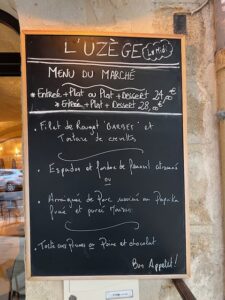 L'UZÈGE Le Midi
MENU DU MARCHÉ
* Entrée + Plat ou Plat + Dessert 24,00€
* Entrée + Plat + Dessert 28,00€
. Filet de Rouget "BARBET" et
Tartare de crevettes
. Espadon et fondue de Fenouil citronné
ou
. de Porc au Paprika
fumé et purée Maison
. Tarte aux prunes ou Poire et chocolat
Bon Appétit!